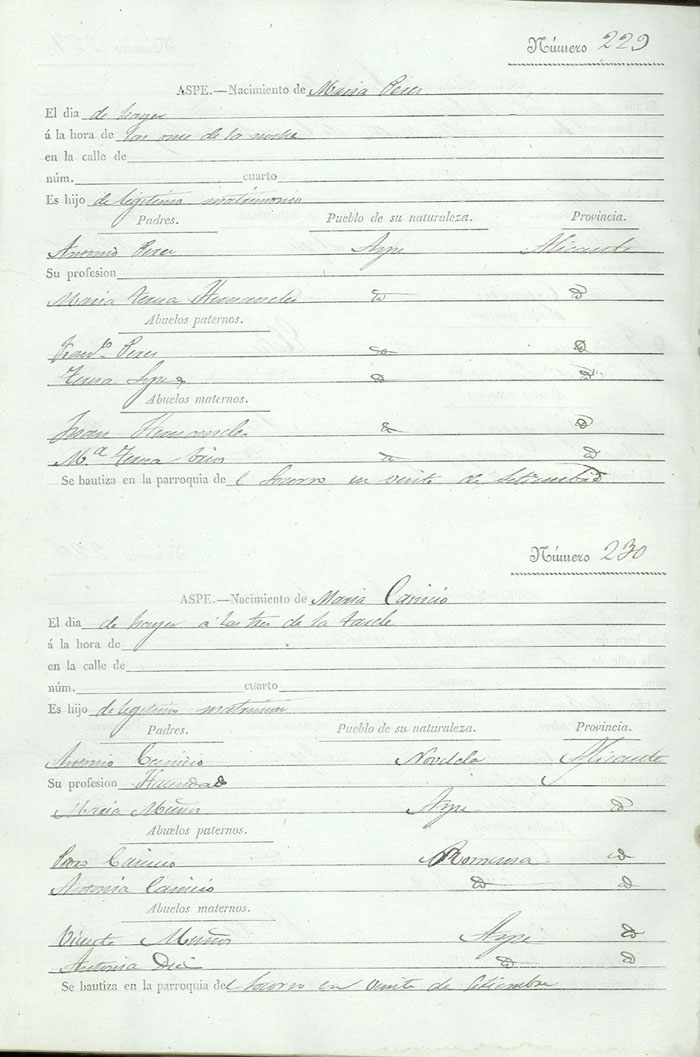 Número 229
ASPE.—Nacimiento de Maria Peres
El dia de hayer
á la hora de las once de la noche
en la calle de
núm. cuarto
Es hijo de legitimo matrimonio
Padres. Pueblo de su naturaleza. Provincia.
Antonio Peres Aspe Alicante
Su profesion
Maria Teresa Hernandes D D
Abuelos paternos.
Franco Peres D D
Teresa D D
Abuelos maternos.
Juan Hernandes D D
Mª Teresa D D
Se bautiza en la parroquia de l Socorro en veinte de Setiembre
Número 230
ASPE.—Nacimiento de Maria Canicio
El dia de hayer á las tres de la tarde
á la hora de
en la calle de
núm. cuarto
Es hijo de legitimo
Padres. Pueblo de su naturaleza. Provincia.
Antonio Canicio Novelda Alicante
Su profesion
Maria Muños Aspe D
Abuelos paternos.
Canicio Romana D
Antonia Canicio D D
Abuelos maternos.
Vicente Muños Aspe D
Antonia D D
Se bautiza en la parroquia del Socorro en veinte de Setiembre